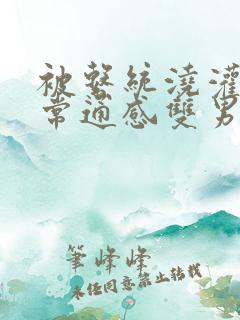 被繫統澆灌
常通感雙男
筆峰峰
未经同意禁止转载